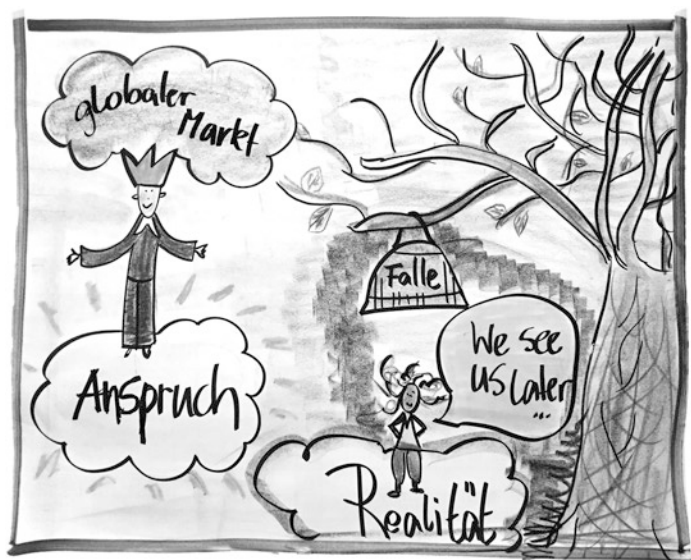 globaler
Markt
Anspruch
Falle
We see
us later
...
Realität